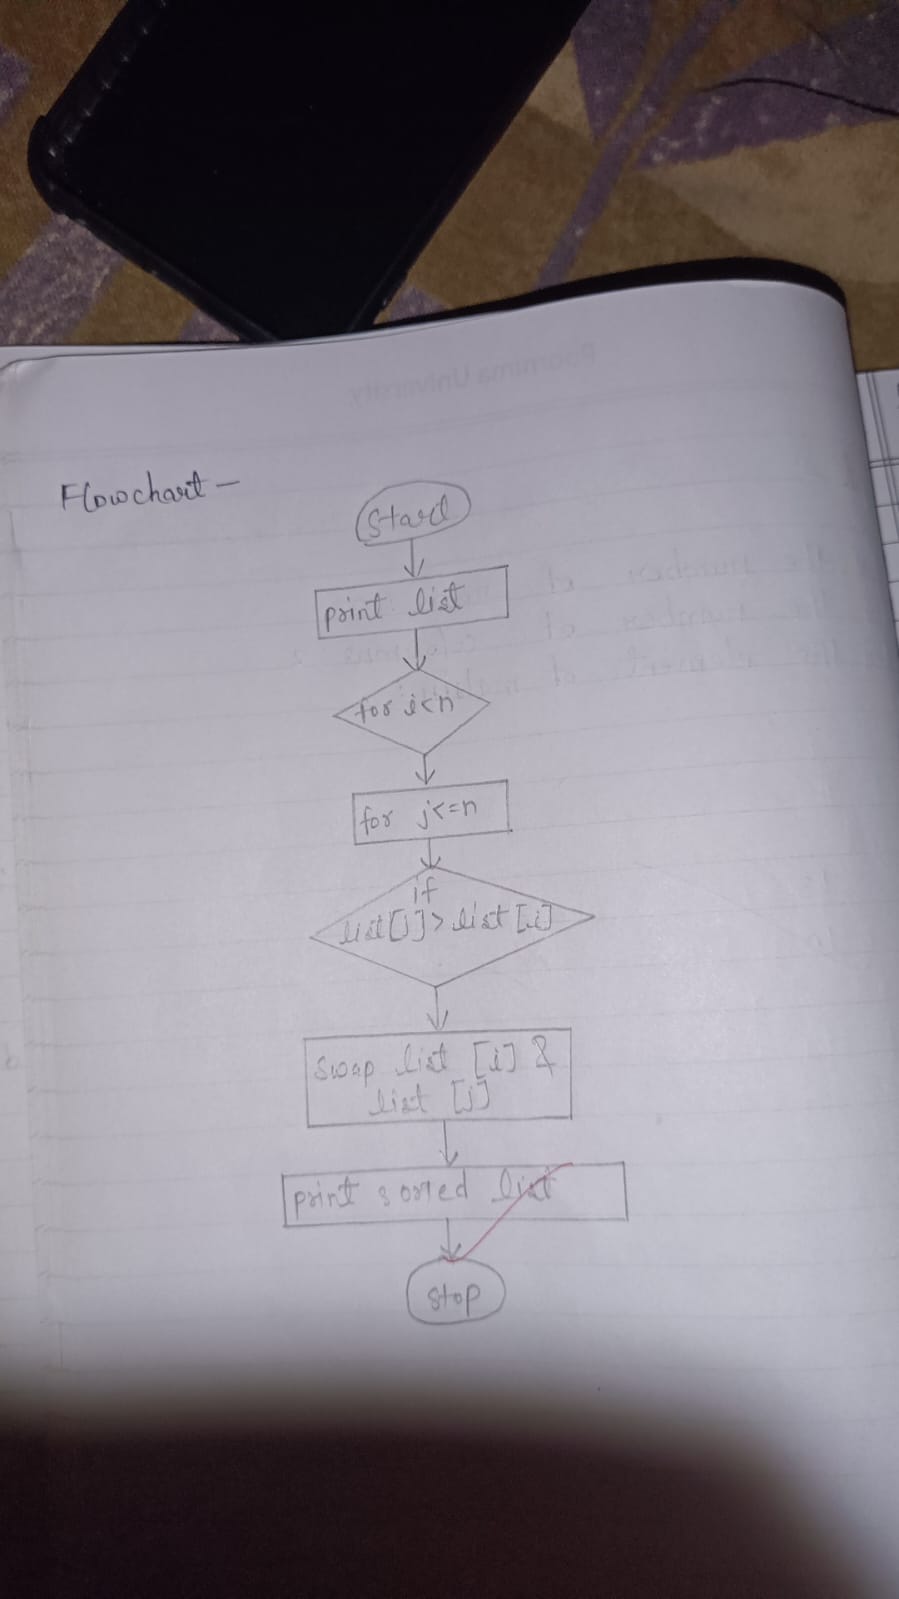 Flowchart -
Start
print list
for i<n
for j<=n
if
list[j]> list[i]
swap list [i] &
list [j]
print sorted list
stop